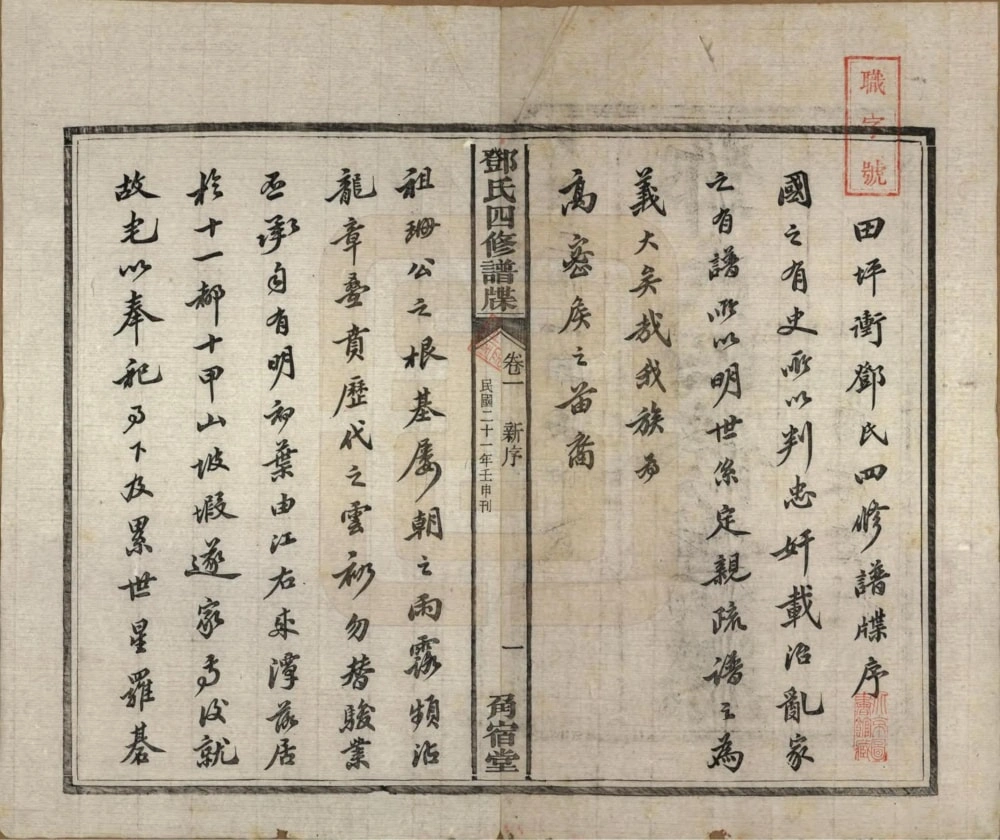 職字號
田坪衝鄧氏四修譜牒序
國之有史所以判忠奸載治亂家
之有譜所以明世系定親疏譜之為
義大矣哉我族為
高密侯之苗裔
鄧氏四修譜牒 卷一 新序 一 角宿堂
民國二十一年壬申刊
祖珊公之根基屢朝之雨露頻沾
龍章疊賁歷代之雲礽勿替駿業
丕承自有明初葉由江右來潭茲居
於十一都十甲山坡塅遂家焉後就
故宅以奉祀事下及累世星羅碁